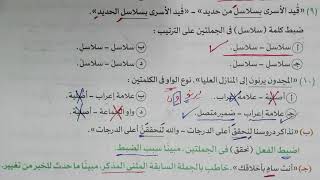 (٩) «قيد الأسرى بسلاسل من حديد» – «قُيد الأسرى بسلاسل الحديد».
ضبط كلمة (سلاسل) في الجملتين على الترتيب :
أ سلاسل – سلاسل ب سلاسل – سلاسل
ج سلاسل – سلاسل د سلاسل – سلاسل
(١٠) «المجدون يرنون إلى المنازل العليا». نوع الواو في الكلمتين :
أ أصلية – علامة إعراب ب علامة إعراب – أصلية
ج علامة إعراب – ضمير متصل د واو الجماعة – أصلية
(ب) «نذاكر دروسنا لنحقق أعلى الدرجات – والله لنحققن أعلى الدرجات».
اضبط الفعل في الجملتين، مبينًا سبب الضبط.
(ج) «أنت سام بأخلاقك». خاطب بالجملة السابقة المثنى المذكر، مبينًا ما حدث للخبر من تغيير.